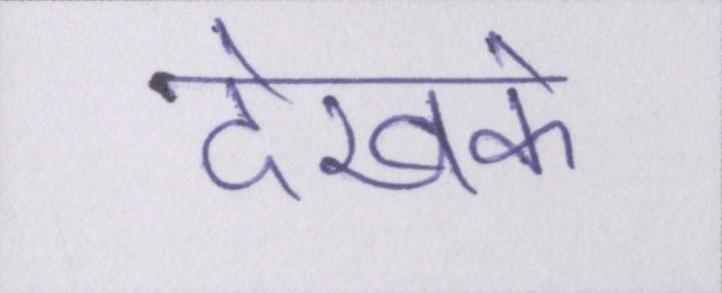 देखके